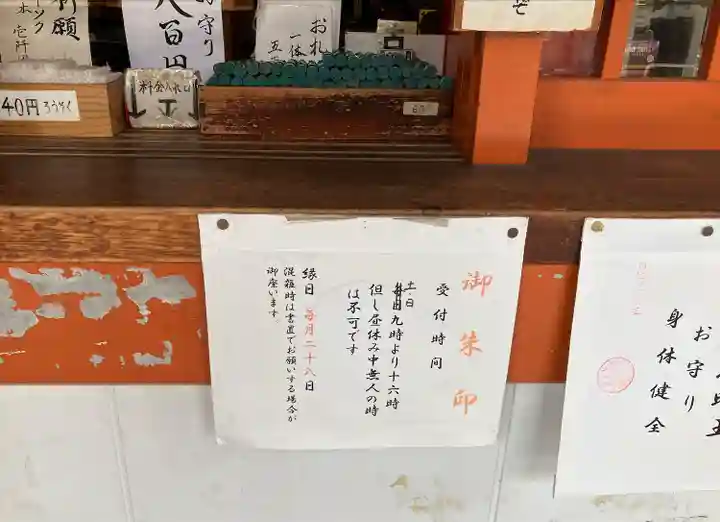 御朱印
受付時間
土日
九時より十六時
但し昼休み中無人の時
は不可です
縁日 毎月二十八日
混雑時は書置でお願いする場合が
御座います。
身体健全
お守り
祈願
お守り
八百円
お札
一体
料金入れ口
40円 ろうそく
60